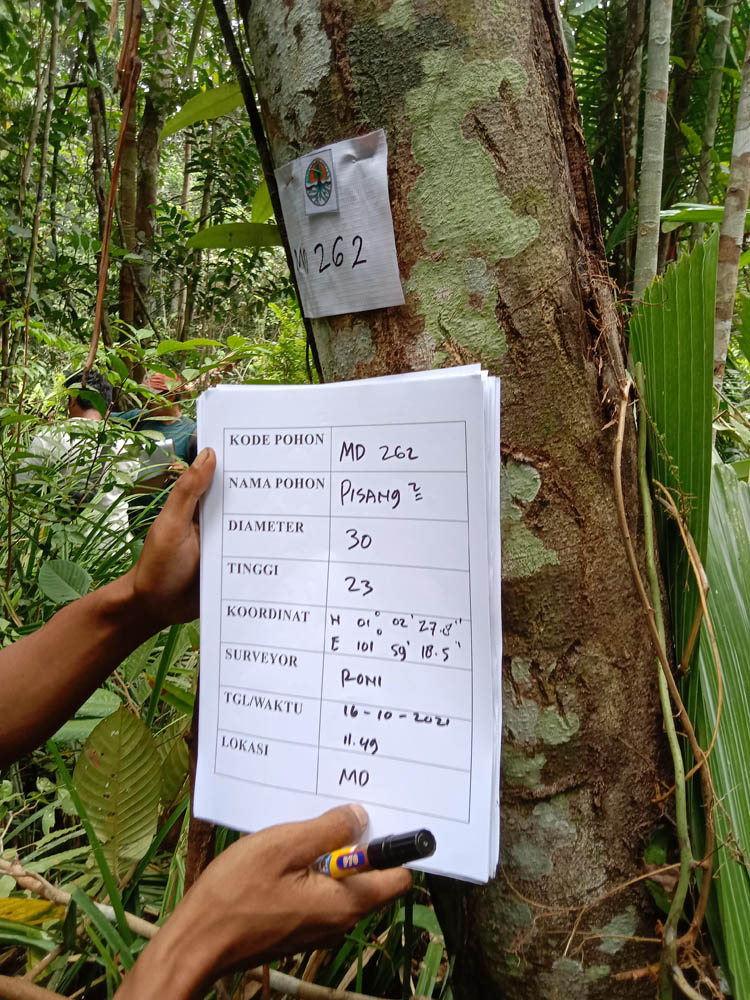 MD 262
KODE POHON MD 262
NAMA POHON PISANG²
DIAMETER 30
TINGGI 23
KOORDINAT N 01° 02' 27.8"
E 101° 59' 18.5"
SURVEYOR RONI
TGL/WAKTU 16-10-2021
11.49
LOKASI MD